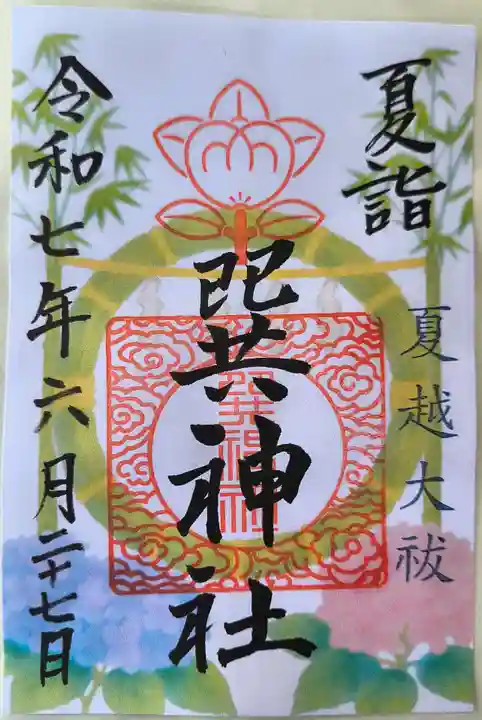 夏詣
夏越大祓
巽神社
巽神社
令和七年六月二十七日